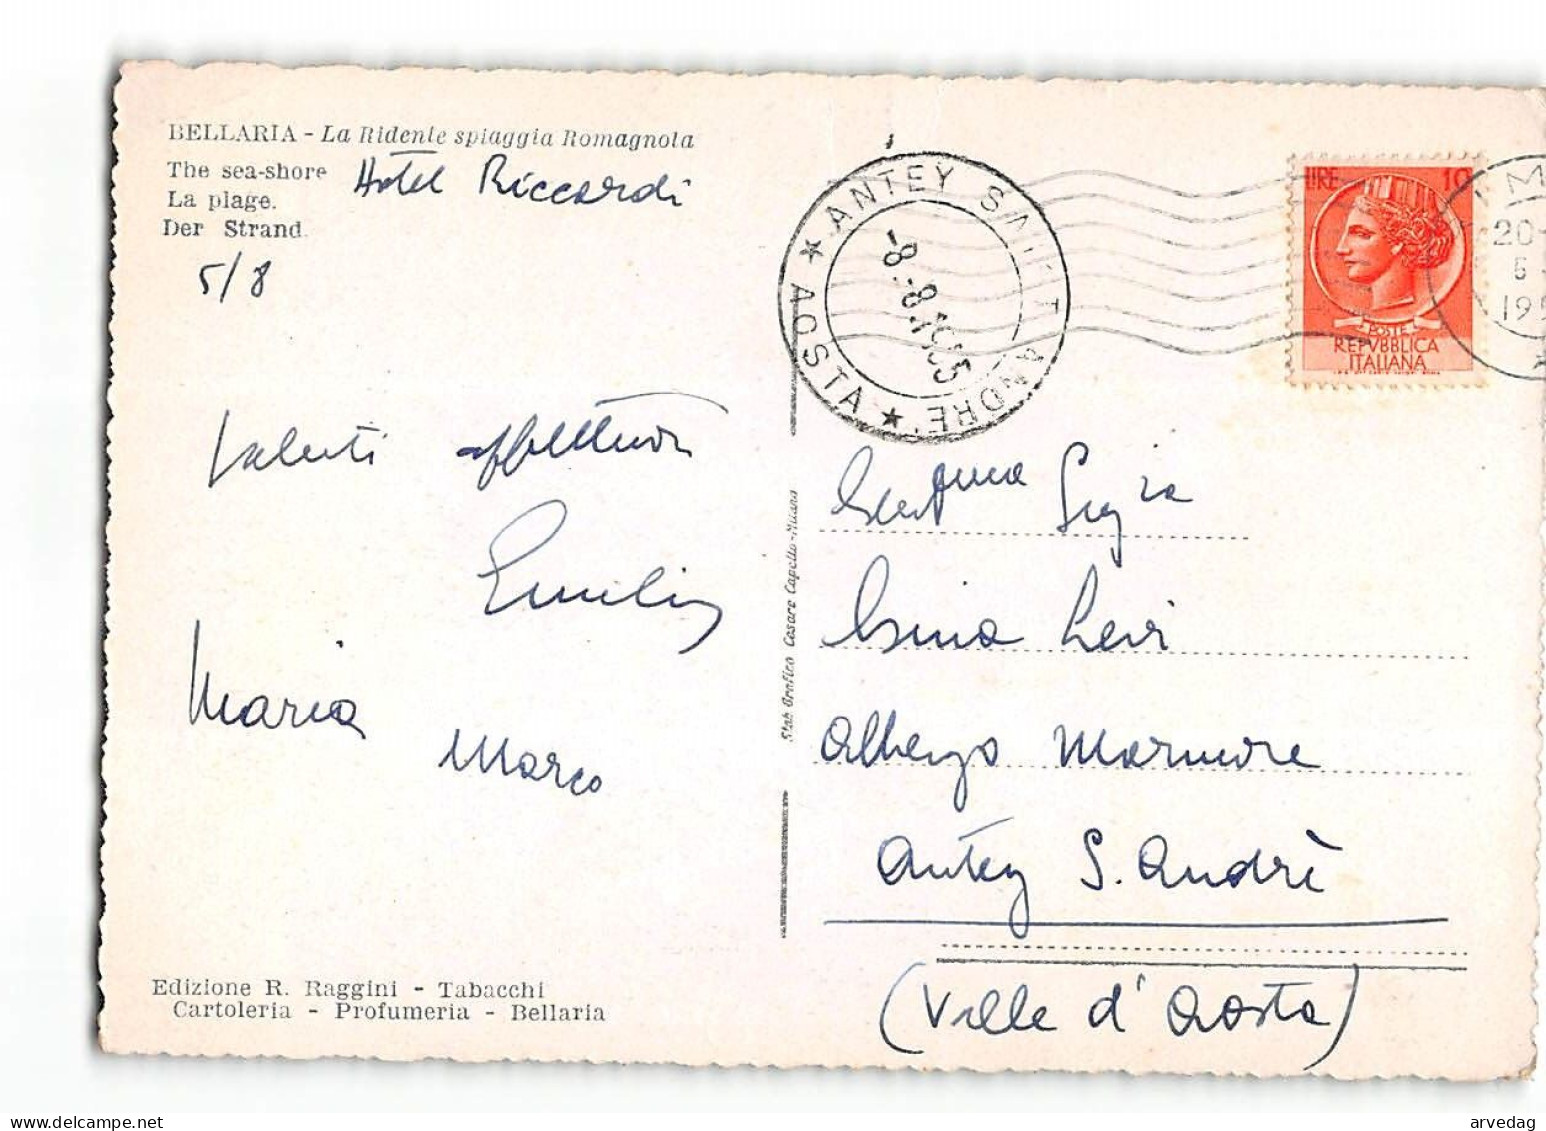 BELLARIA - La Ridente spiaggia Romagnola
The sea-shore
La plage.
Der Strand.
Hotel Riccardi
5/8
Saluti affettuosi
Emilia
Maria
Marco
Edizione R. Raggini - Tabacchi
Cartoleria - Profumeria - Bellaria
Stab Grafico Cesare Capello - Milano
★ ANTEY SAINT ANDRE' ★ AOSTA
-8.-8.1955
LIRE 10
POSTE
REPVBBLICA
ITALIANA
M
20-
5
195
Gent.ma Sig.ra
Levi
Albergo Marmore
Antey S. Andrè
(Valle d'Aosta)